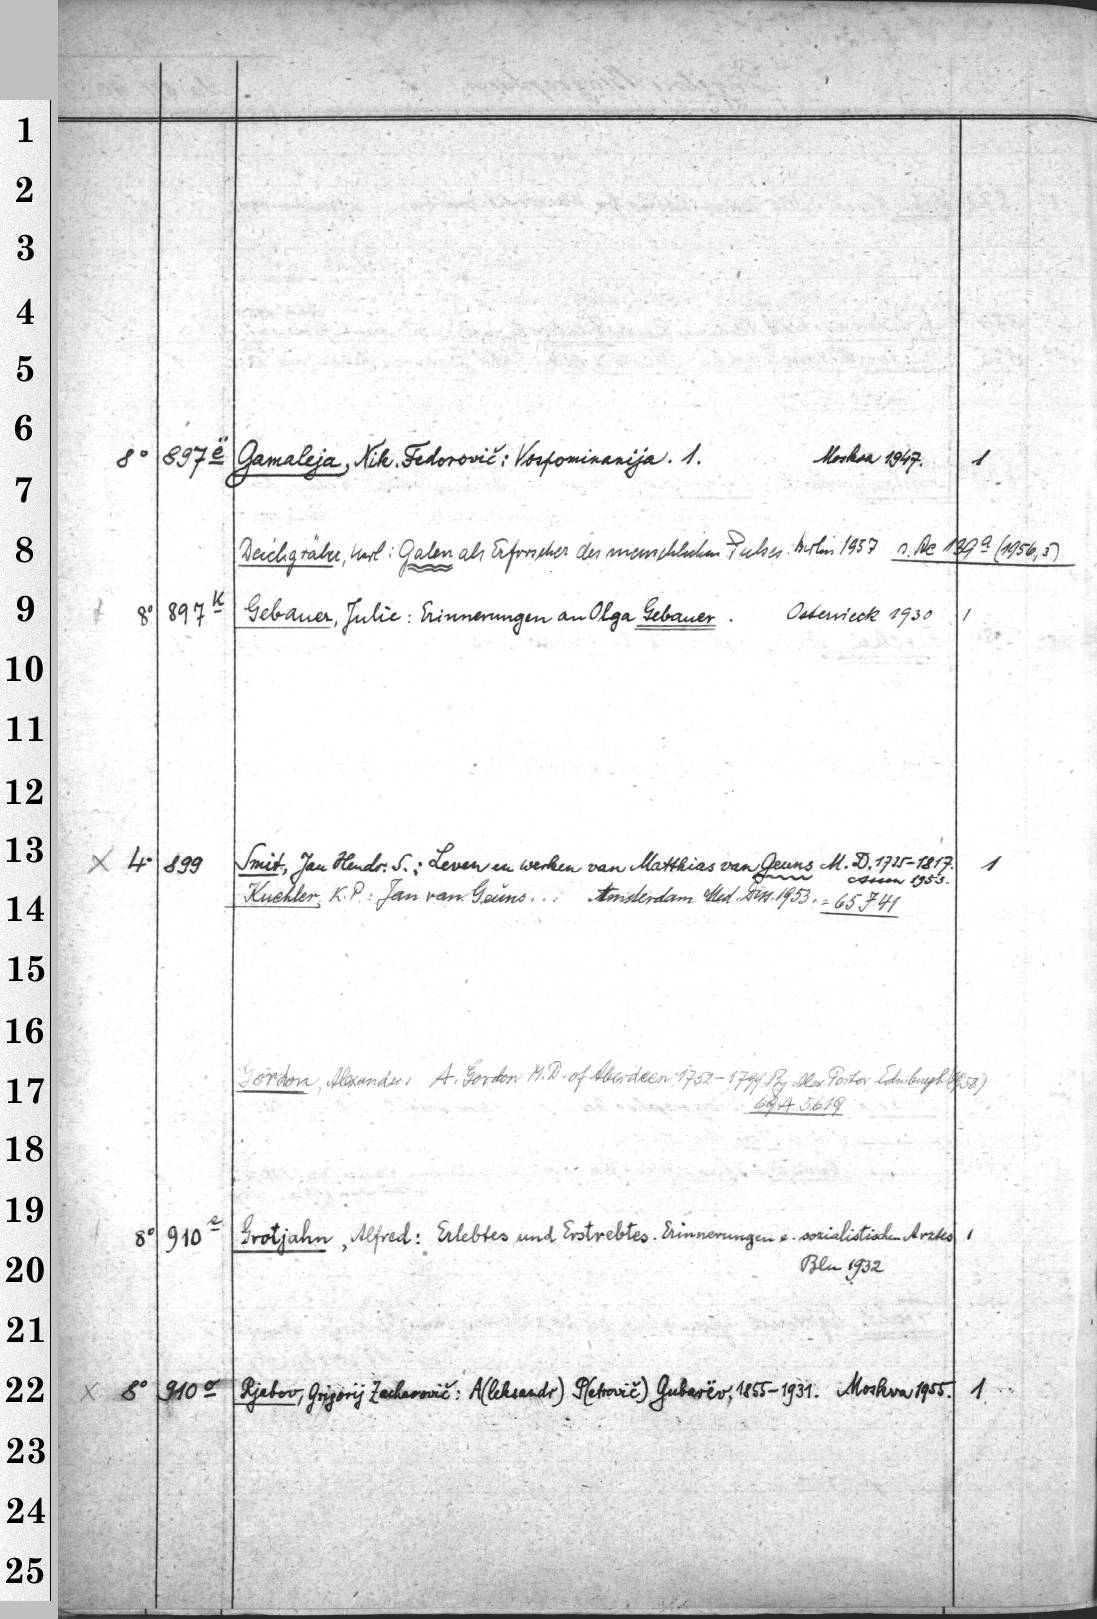 1
2
3
4
5
6
8° 897 ë Gamaleja, Nik. Fedorovič: Vospominanija. 1. Moskva 1947. 1
7
8 Deichgräber, Karl: Galen als Erforscher des menschlichen Pulses. Berlin 1957 s. Ac 139 a (1956,3)
9 8° 897 k Gebauer, Julie: Erinnerungen an Olga Gebauer. Osterwieck 1930 1
10
11
12
13 X 4° 899 Smit, Jan Hendr. S.: Leven en werken van Matthias van Geuns M. D. 1725-1817. 1
Assen 1953.
14 Kuehler, K. P.: Jan van Geuns... Amsterdam Med. Diss. 1953. = 65 F 41
15
16
17 Gordon, Alexander: A. Gordon M.D. of Aberdeen 1752-1799. By Porter Edinburgh (1958)
69 A 5619
18
19 8° 910 e Grotjahn, Alfred: Erlebtes und Erstrebtes. Erinnerungen e. sozialistischen Arztes 1
20 Bln 1932
21
22 X 8° 910 g Rjabov, Grigorij Zacharovič: A(leksandr) P(etrovič) Gubarëv, 1855-1931. Moskva 1955. 1
23
24
25